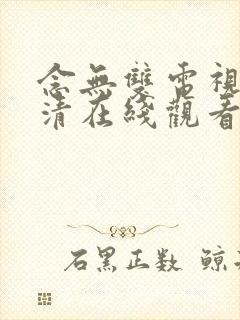 念無雙電視
清在綫觀看
石黑正数 鲸